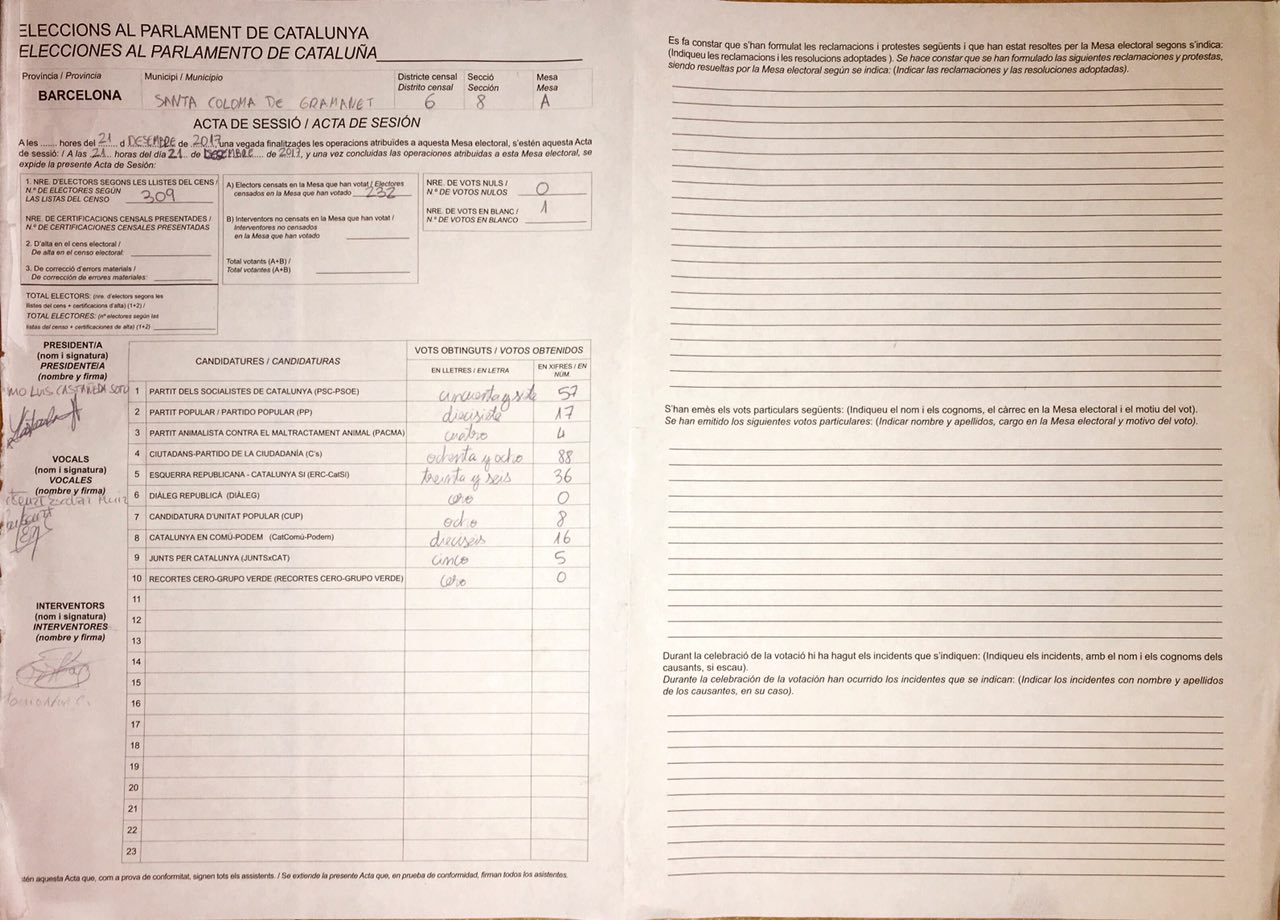 ELECCIONS AL PARLAMENT DE CATALUNYA
ELECCIONES AL PARLAMENTO DE CATALUÑA
Província / Provincia
BARCELONA
Municipi / Municipio
SANTA COLOMA DE GRAMANET
Districte censal
Distrito censal
6
Secció
Sección
8
Mesa
Mesa
A
ACTA DE SESSIÓ / ACTA DE SESIÓN
A les ....... hores del 21 d DESEMBRE de 2017, una vegada finalitzades les operacions atribuïdes a aquesta Mesa electoral, s'estén aquesta Acta
de sessió: / A las 21 horas del día 21 de DESEMBRE de 2017, y una vez concluidas las operaciones atribuidas a esta Mesa electoral, se
expide la presente Acta de Sesión:
1. NRE. D'ELECTORS SEGONS LES LLISTES DEL CENS /
N.º DE ELECTORES SEGÚN
LAS LISTAS DEL CENSO 309
NRE. DE CERTIFICACIONS CENSALS PRESENTADES /
N.º DE CERTIFICACIONES CENSALES PRESENTADAS
2. D'alta en el cens electoral /
De alta en el censo electoral:
3. De correcció d'errors materials /
De corrección de errores materiales:
TOTAL ELECTORS: (nre. d'electors segons les
llistes del cens + certificacions d'alta) (1+2) /
TOTAL ELECTORES: (nº electores según las
listas del censo + certificaciones de alta) (1+2)
A) Electors censats en la Mesa que han votat / Electores
censados en la Mesa que han votado 232
B) Interventors no censats en la Mesa que han votat /
Interventores no censados
en la Mesa que han votado
Total votants (A+B) /
Total votantes (A+B)
NRE. DE VOTS NULS /
N.º DE VOTOS NULOS 0
NRE. DE VOTS EN BLANC /
N.º DE VOTOS EN BLANCO 1
PRESIDENT/A
(nom i signatura)
PRESIDENTE/A
(nombre y firma)
LUIS CASTAÑEDA SOTO
VOCALS
(nom i signatura)
VOCALES
(nombre y firma)
INTERVENTORS
(nom i signatura)
INTERVENTORES
(nombre y firma)
CANDIDATURES / CANDIDATURAS
VOTS OBTINGUTS / VOTOS OBTENIDOS
EN LLETRES / EN LETRA
EN XIFRES / EN NÚM.
1 PARTIT DELS SOCIALISTES DE CATALUNYA (PSC-PSOE) cincuenta y siete 57
2 PARTIT POPULAR / PARTIDO POPULAR (PP) diecisiete 17
3 PARTIT ANIMALISTA CONTRA EL MALTRACTAMENT ANIMAL (PACMA) cuatro 4
4 CIUTADANS-PARTIDO DE LA CIUDADANÍA (C's) ochenta y ocho 88
5 ESQUERRA REPUBLICANA - CATALUNYA SÍ (ERC-CatSí) treinta y seis 36
6 DIÀLEG REPUBLICÀ (DIÀLEG) cero 0
7 CANDIDATURA D'UNITAT POPULAR (CUP) ocho 8
8 CATALUNYA EN COMÚ-PODEM (CatComú-Podem) dieciseis 16
9 JUNTS PER CATALUNYA (JUNTSxCAT) cinco 5
10 RECORTES CERO-GRUPO VERDE (RECORTES CERO-GRUPO VERDE) cero 0
11
12
13
14
15
16
17
18
19
20
21
22
23
tén aquesta Acta que, com a prova de conformitat, signen tots els assistents. / Se extiende la presente Acta que, en prueba de conformidad, firman todos los asistentes.
Es fa constar que s'han formulat les reclamacions i protestes següents i que han estat resoltes per la Mesa electoral segons s'indica:
(Indiqueu les reclamacions i les resolucions adoptades ). Se hace constar que se han formulado las siguientes reclamaciones y protestas,
siendo resueltas por la Mesa electoral según se indica: (Indicar las reclamaciones y las resoluciones adoptadas).
S'han emès els vots particulars següents: (Indiqueu el nom i els cognoms, el càrrec en la Mesa electoral i el motiu del vot).
Se han emitido los siguientes votos particulares: (Indicar nombre y apellidos, cargo en la Mesa electoral y motivo del voto).
Durant la celebració de la votació hi ha hagut els incidents que s'indiquen: (Indiqueu els incidents, amb el nom i els cognoms dels
causants, si escau).
Durante la celebración de la votación han ocurrido los incidentes que se indican: (Indicar los incidentes con nombre y apellidos
de los causantes, en su caso).